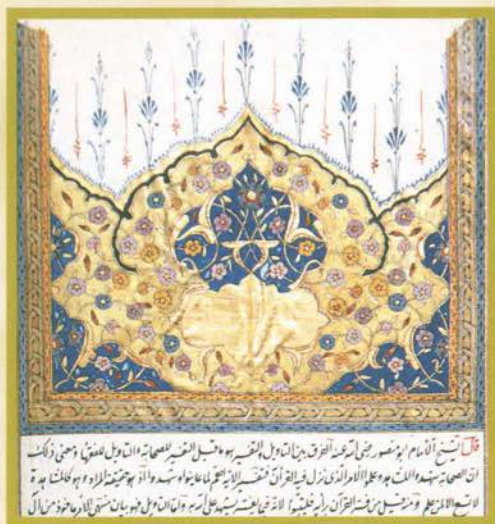 قال الشيخ الامام ابو منصور رضي الله عنه الفرق بين التاويل والتفسير هو ما قيل التفسير للصحابة والتاويل للفقهاء ومعنى ذلك
ان الصحابة شهدوا المشاهد وعلموا الامر الذى نزل فيه القرآن فتفسير الاية اهم لما عاينوا وشهدوا اذ هو حقيقة المراد وهو كالمشاهدة
لا تسمع الا لمن علم ومنه قيل من فسر القرآن برأيه فليتبوأ لانه فيما يفسر يشهد على الله به واما التاويل فهو بيان منتهى الامر مأخوذ من آل